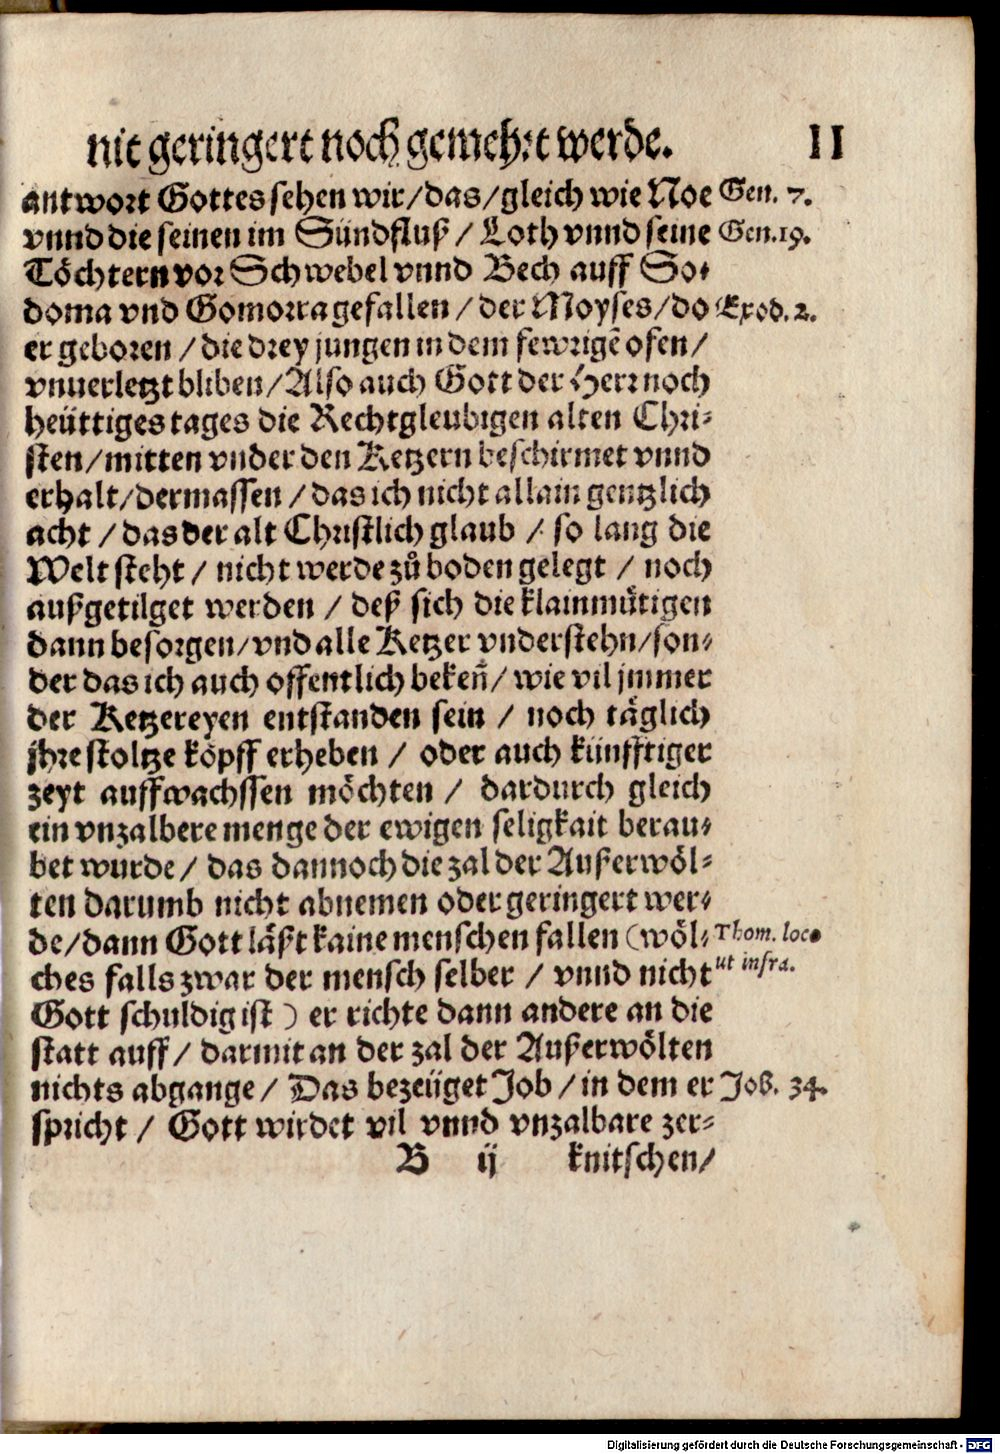 nit geringert noch gemehrt werde. 11
antwort Gottes sehen wir/das/gleich wie Noe Gen. 7.
vnnd die seinen im Sündfluß / Loth vnnd seine Gen. 19.
Töchtern vor Schwebel vnnd Bech auff So-
doma vnd Gomorra gefallen / der Moyses/do Exod. 2.
er geboren / die drey jungen in dem fewrigē ofen/
vnuerletzt bliben/Also auch Gott der Herr noch
heüttiges tages die Rechtgleubigen alten Chri-
sten/mitten vnder den Ketzern beschirmet vnnd
erhalt/dermassen / das ich nicht allain gentzlich
acht / das der alt Christlich glaub / so lang die
Welt steht / nicht werde zů boden gelegt / noch
außgetilget werden / deß sich die klainmütigen
dann besorgen/vnd alle Ketzer vnderstehn/son-
der das ich auch offentlich bekeñ/ wie vil jmmer
der Ketzereyen entstanden sein / noch täglich
jhre stoltze köpff erheben / oder auch künfftiger
zeyt auffwachssen möchten / dardurch gleich
ein vnzalbere menge der ewigen seligkait berau-
bet wurde / das dannoch die zal der Außerwöl-
ten darumb nicht abnemen oder geringert wer-
de/dann Gott läßt kaine menschen fallen (wöl- Thom. loco
ches falls zwar der mensch selber / vnnd nicht ut infra.
Gott schuldig ist ) er richte dann andere an die
statt auff / darmit an der zal der Außerwölten
nichts abgange / Das bezeüget Job / in dem er Job. 34.
spricht / Gott wirdet vil vnnd vnzalbare zer-
B ij knitschen/
Digitalisierung gefördert durch die Deutsche Forschungsgemeinschaft - DFG